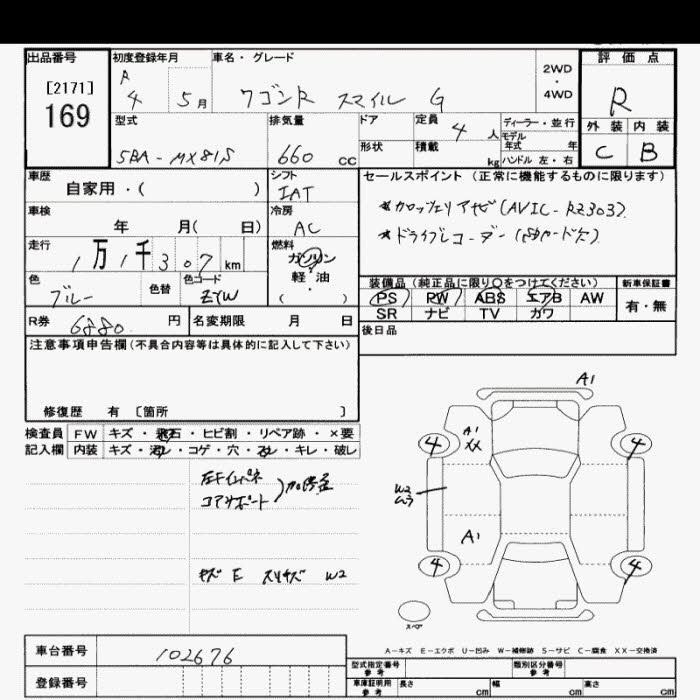 出品番号
[2171]
169
初度登録年月
R
4 5月
車名・グレード
ワゴンR スマイル G
2WD
・
4WD
評価点
R
外装 内装
C B
型式
5BA-MX81S
排気量
660 cc
ドア
形状
定員
4 人
積載
kg
ディーラー・並行
モデル
年式 年
ハンドル 左・右
車歴
自家用・( )
シフト
IAT
セールスポイント (正常に機能するものに限ります)
*カロッツェリアナビ(AVIC-RZ303)
*ドライブレコーダー(SDカード欠)
車検
年 月( 日)
冷房
AC
走行
1万1千307km
燃料
ガソリン
軽・油
( )
色
ブルー
色替
色コード
ZYW
装備品 (純正品に限り○をつけてください)
PS PW ABS エアB AW
SR ナビ TV カワ
新車保証書
有・無
R券 6880 円
名変期限 月 日
後日品
注意事項申告欄(不具合内容等は具体的に記入して下さい)
修復歴 有 〔箇所 〕
検査員
記入欄
FW キズ・飛石・ヒビ割・リペア跡・×要
内装 キズ・汚レ・コゲ・穴・スレ・キレ・破レ
左Fインパネ
コアサポート
)加修歴
キズ E スリキズ W2
A1
A1
XX
4 4
W2
ムラ
A1
4 4
スペア
A-キズ E-エクボ U-凹み W-補修跡 S-サビ C-腐食 XX-交換済
車台番号 102676
登録番号
型式指定番号
参考
類別区分番号
参考
車庫証明用
参考
長さ cm 幅 cm 高さ cm